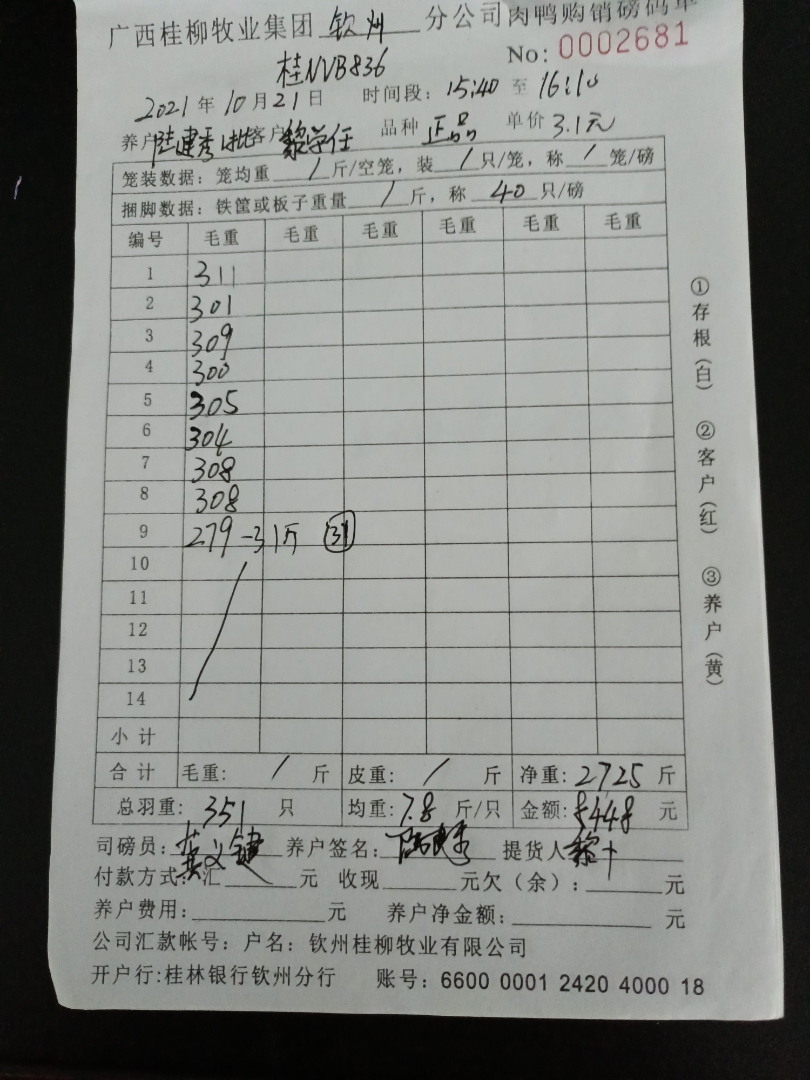 广西桂柳牧业集团 钦州 分公司肉鸭购销磅码单
No: 0002681
桂NVB836
2021年10月21日 时间段：15:40 至 16:10
养户 陆建秀 1批 客户 黎学任 品种 正品 单价 3.1元
笼装数据：笼均重 / 斤/空笼，装 / 只/笼，称 / 笼/磅
捆脚数据：铁筐或板子重量 / 斤，称 40 只/磅
编号 毛重 毛重 毛重 毛重 毛重 毛重
1 311
2 301
3 309
4 300
5 305
6 304
7 308
8 308
9 279 -31斤 31
10
11
12
13
14
小计
合计 毛重： / 斤 皮重： / 斤 净重：2725 斤
总羽重：351 只 均重：7.8 斤/只 金额：8448 元
司磅员： 养户签名： 提货人
付款方式：汇 元 收现 元欠（余）： 元
养户费用： 元 养户净金额： 元
公司汇款帐号：户名：钦州桂柳牧业有限公司
开户行:桂林银行钦州分行 账号：6600 0001 2420 4000 18
①存根(白) ②客户(红) ③养户(黄)